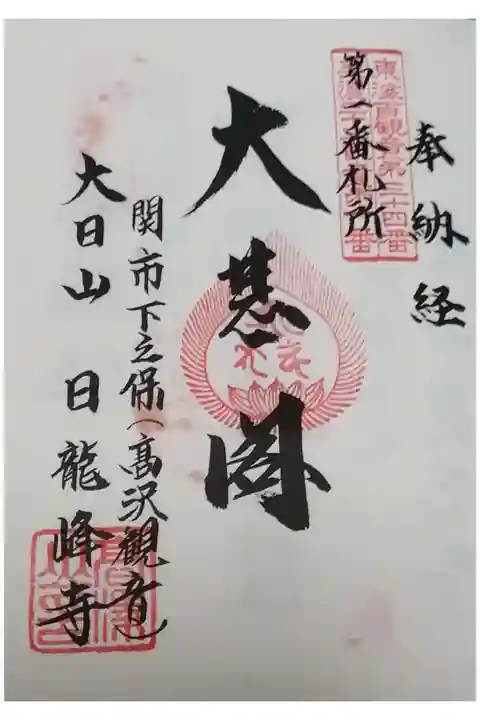 奉納経
第一番札所
東海百観音第三十四番
大慈閣
関市下之保(高沢観音)
大日山 日龍峰寺